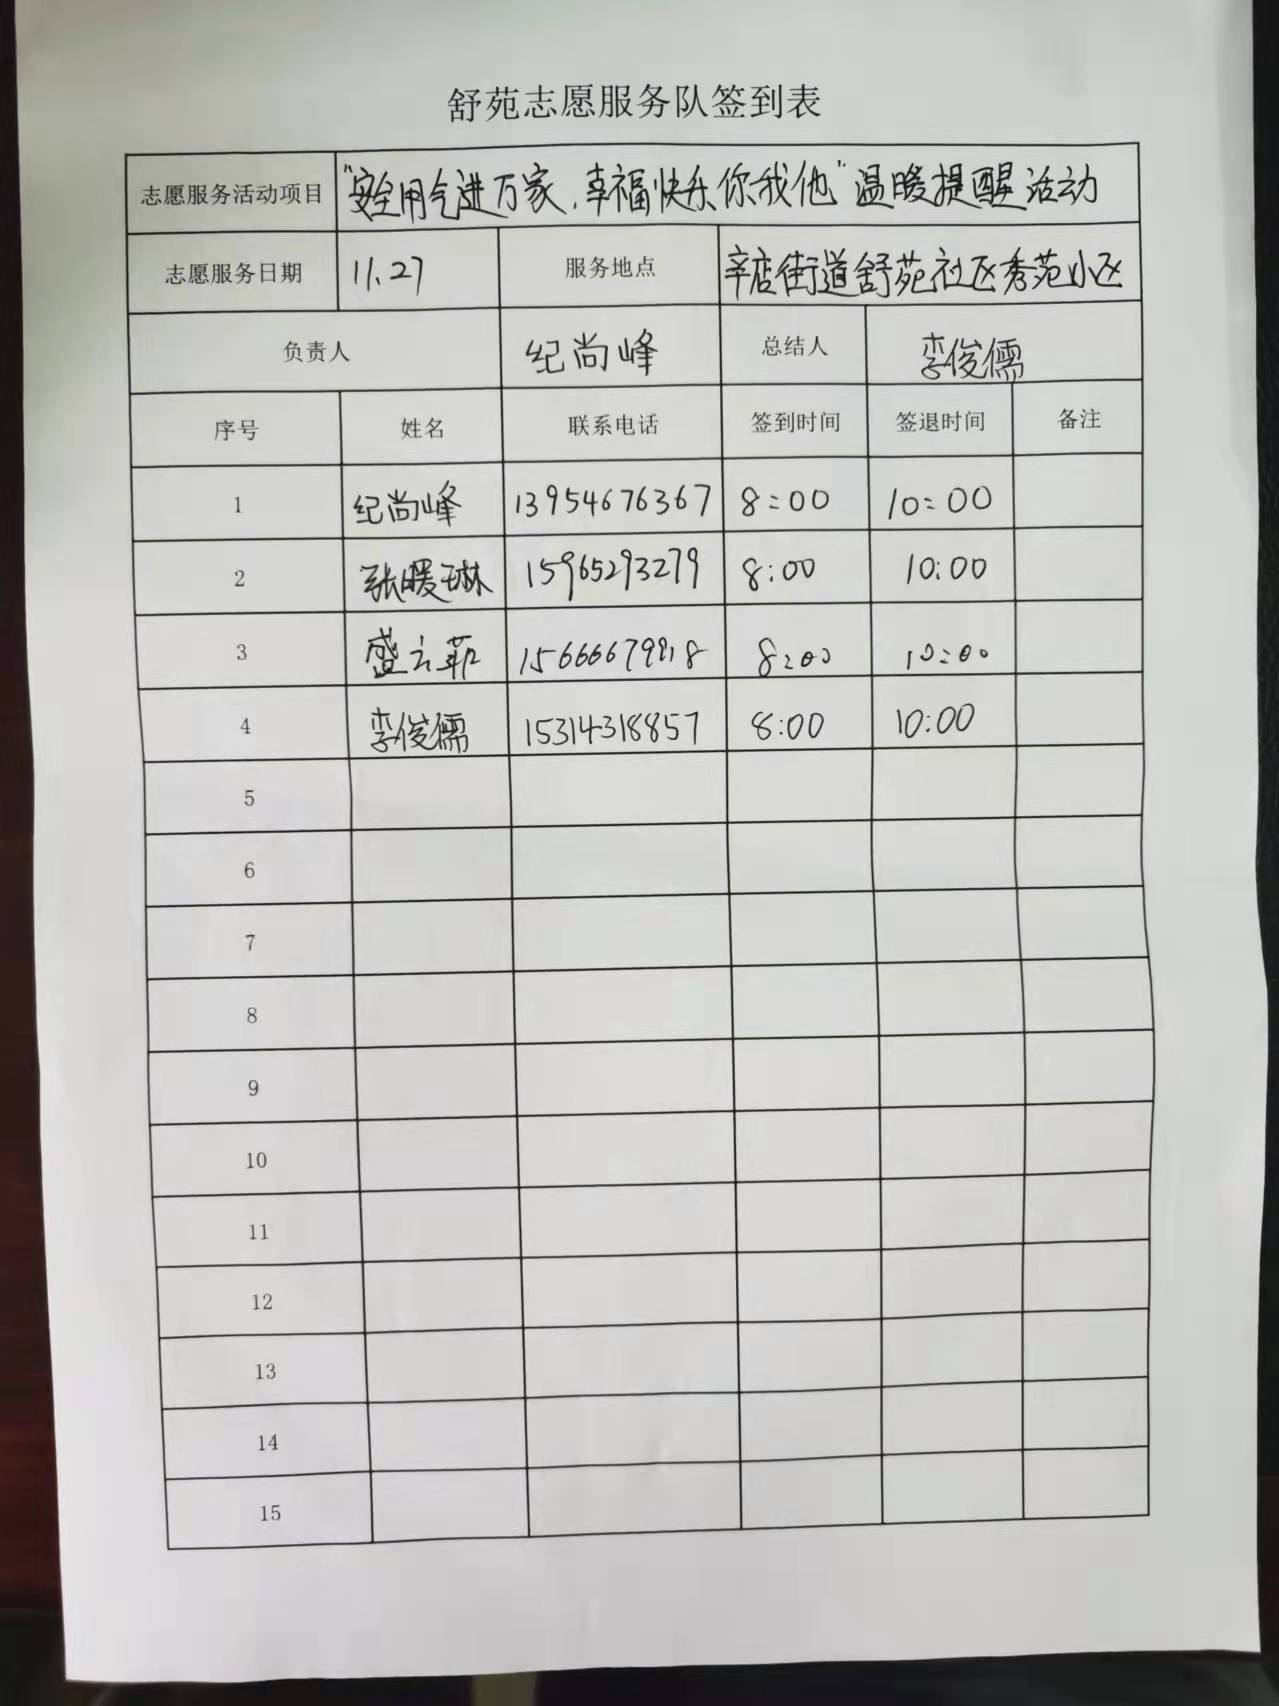 舒苑志愿服务队签到表
志愿服务活动项目 "安全用气进万家，幸福快乐你我他"温暖提醒活动
志愿服务日期 11.27 服务地点 辛店街道舒苑社区秀苑小区
负责人 纪尚峰 总结人 李俊儒
序号 姓名 联系电话 签到时间 签退时间 备注
1 纪尚峰 13954676367 8:00 10:00
2 张暖琳 15965293279 8:00 10:00
3 盛云菲 8:00 10:00
4 李俊儒 15314318857 8:00 10:00
5
6
7
8
9
10
11
12
13
14
15